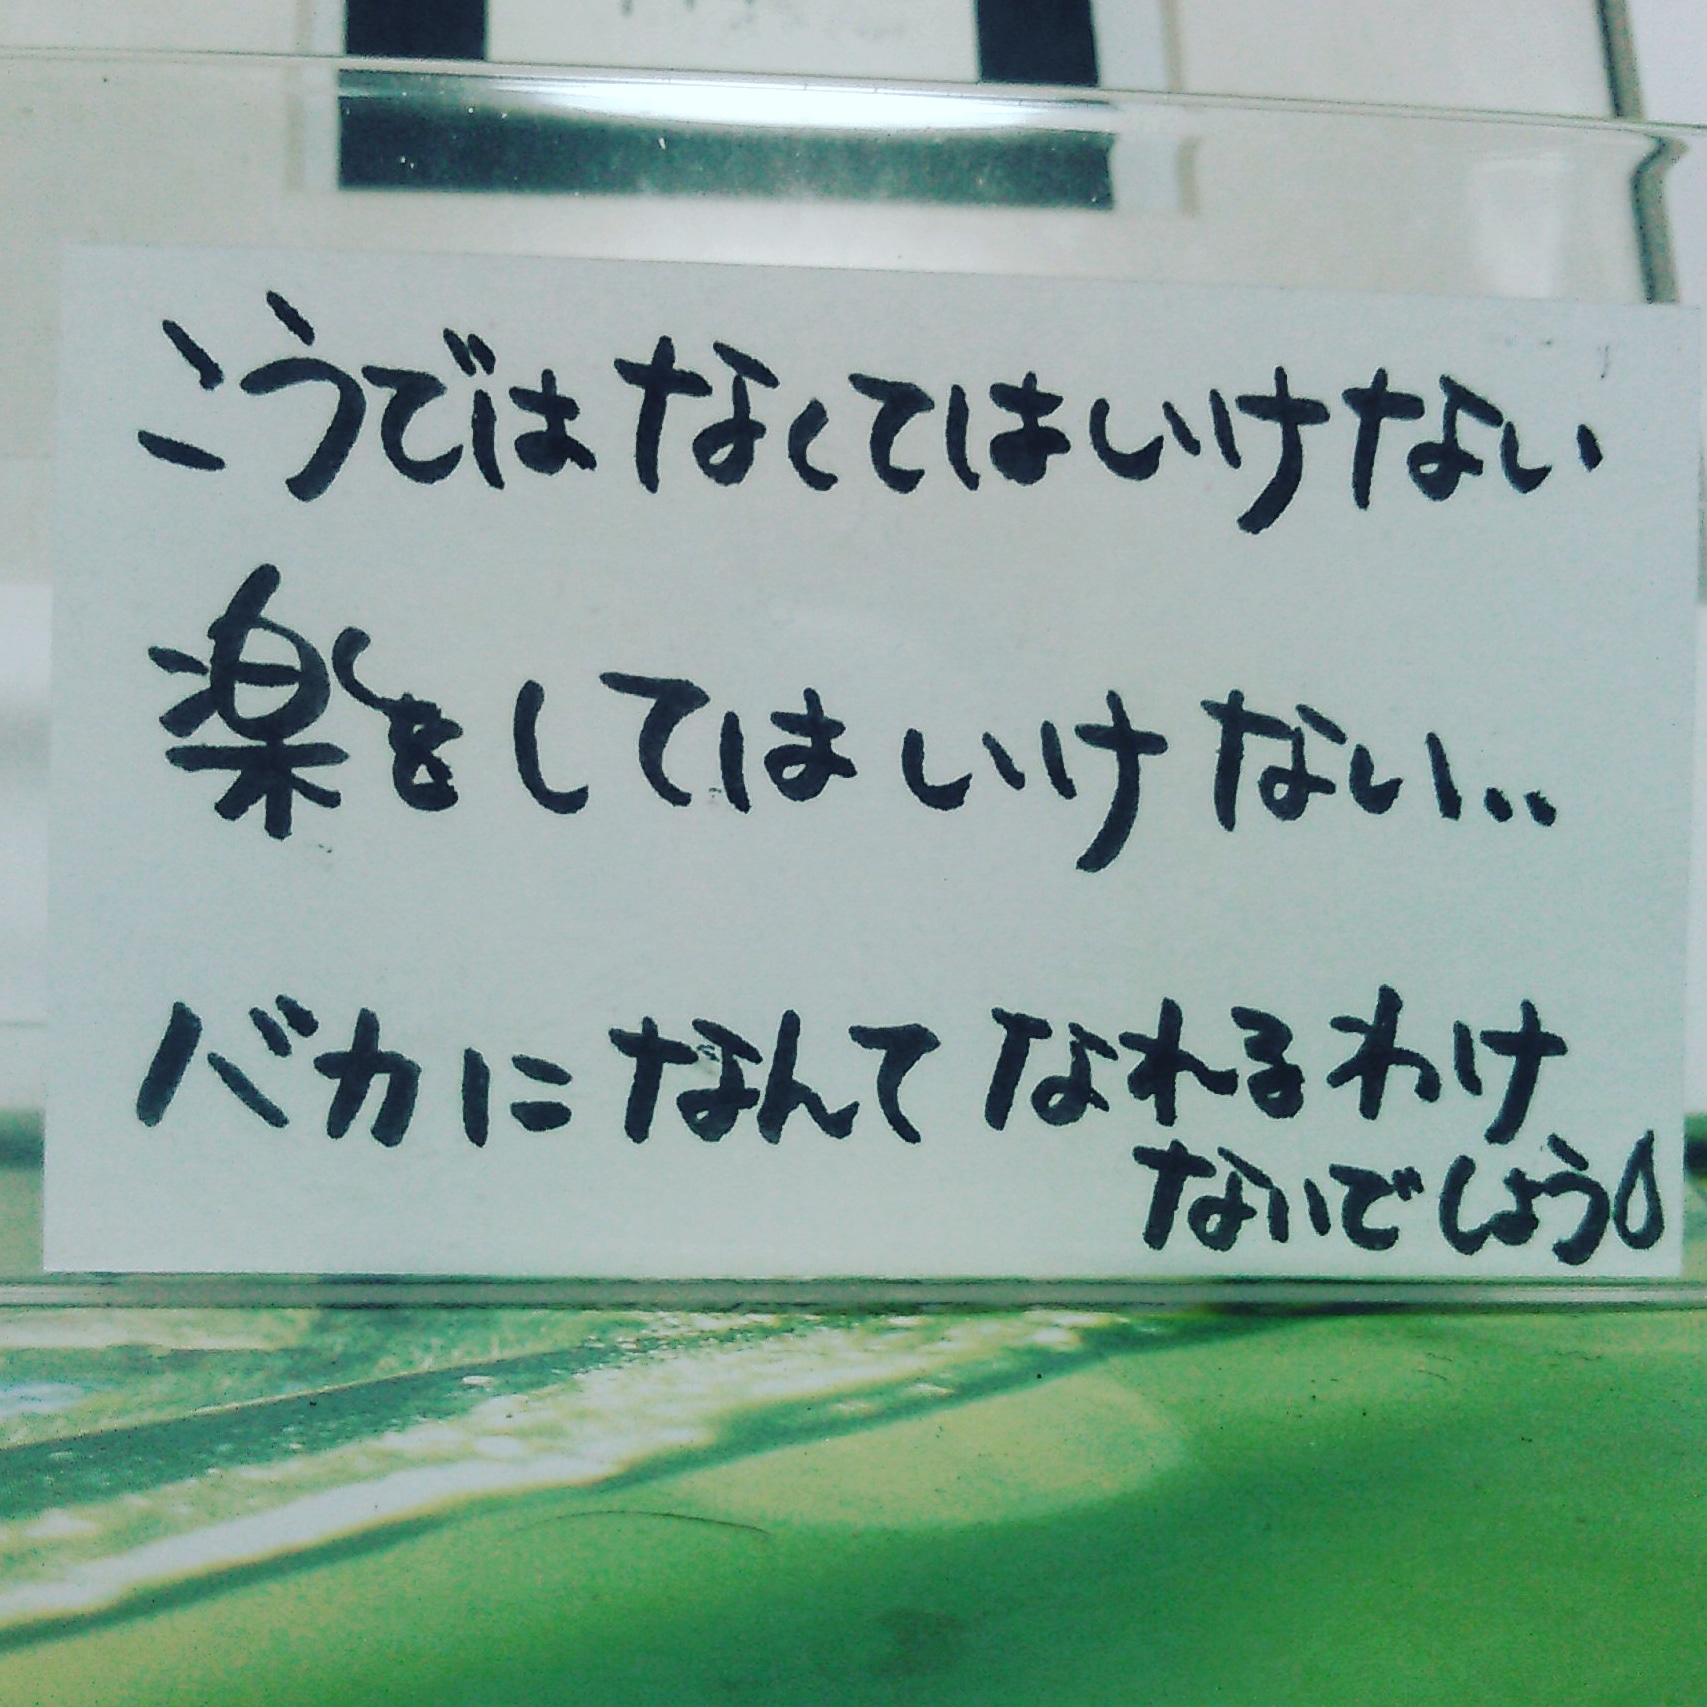 こうではなくてはいけない
楽をしてはいけない..
バカになんてなれるわけ
ないでしょう